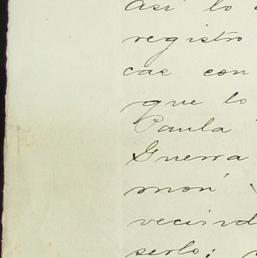 así lo
registro
cas con
que lo
Paula
Guerra
món
vecind
serlo;